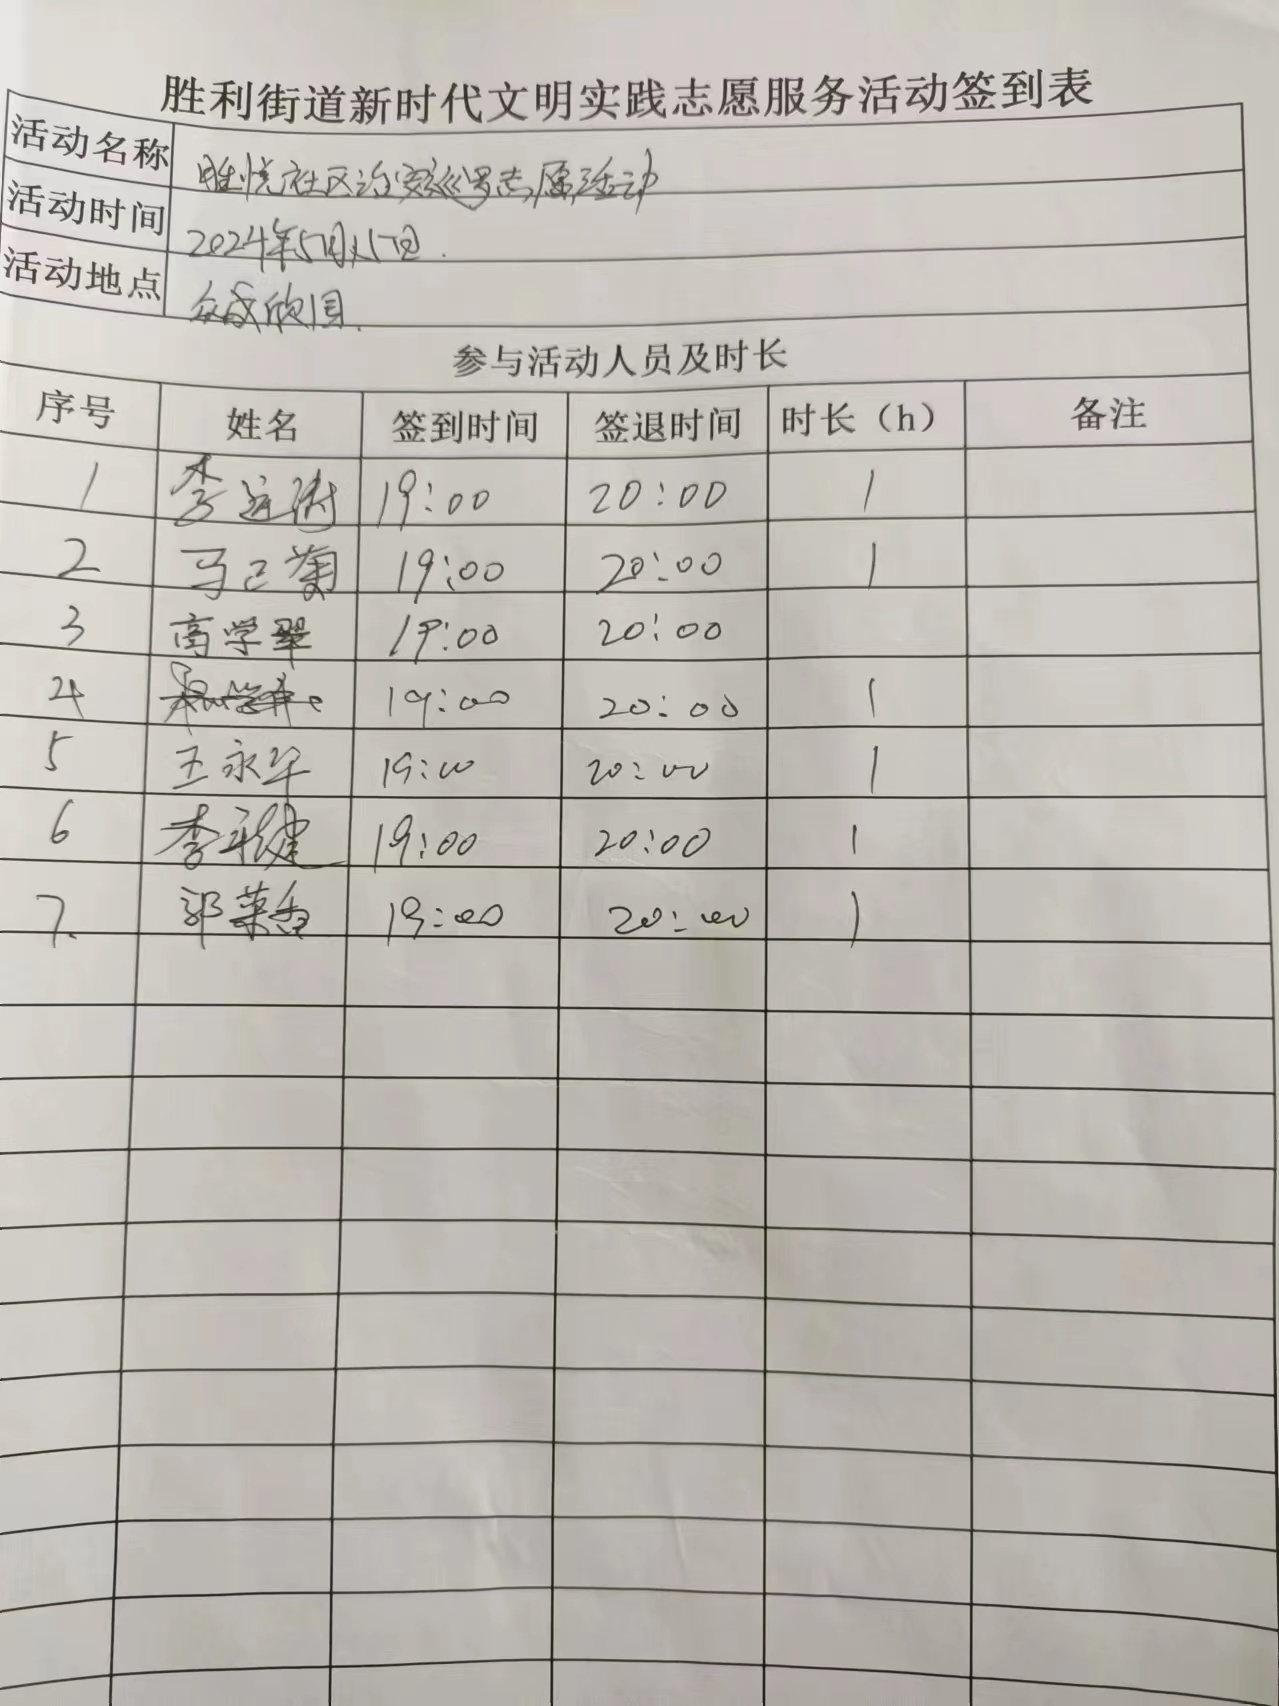 胜利街道新时代文明实践志愿服务活动签到表
活动名称 胜悦社区治安巡逻志愿活动
活动时间 2024年5月15日.
活动地点 众成欣园.
参与活动人员及时长
序号 姓名 签到时间 签退时间 时长（h） 备注
1 李 19:00 20:00 1
2 马 19:00 20:00 1
3 高学翠 19:00 20:00
4 19:00 20:00 1
5 王永华 19:00 20:00 1
6 李 健 19:00 20:00 1
7. 郭菜香 19:00 20:00 1